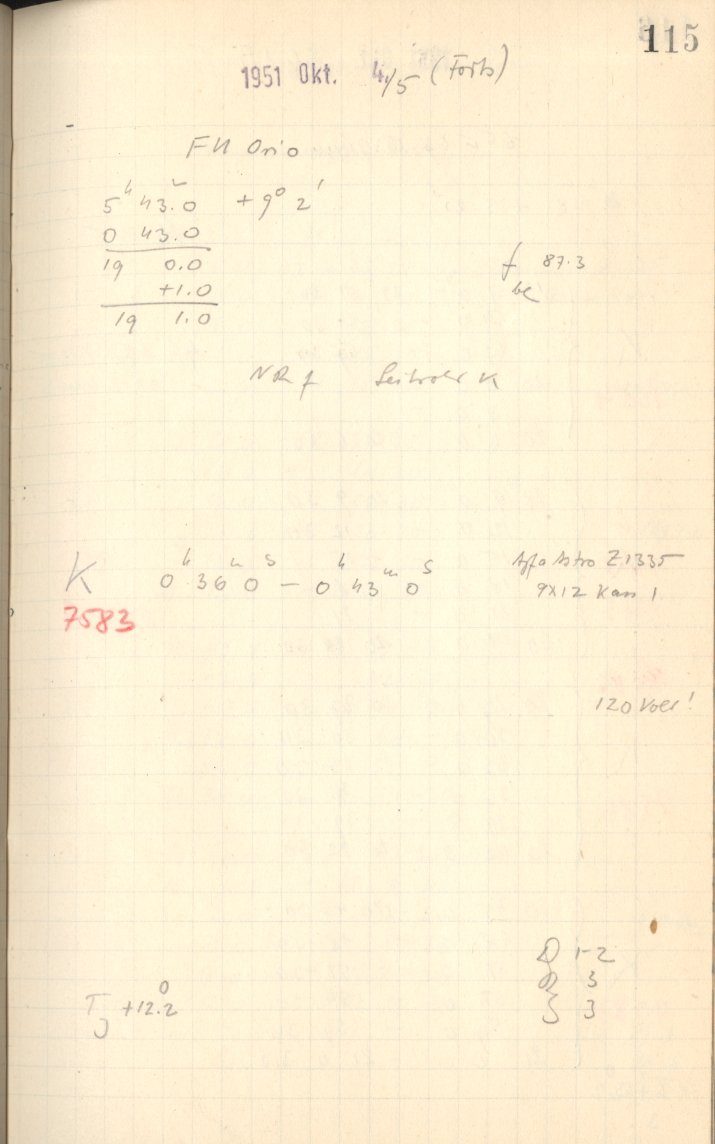 115
1951 Okt. 4./5 (Forts)
FU Orio
5ʰ 43.ᵐ0 +9° 2'
0 43.0
19 0.0
+1.0
19 1.0
f 87.3
NR f K
K 0ʰ 36ᵐ 0ˢ – 0ʰ 43ᵐ 0ˢ
7583
Agfa Astro Z 1335
9x12 Kass 1
120 Volt!
1-2
3
3
T +12.2°